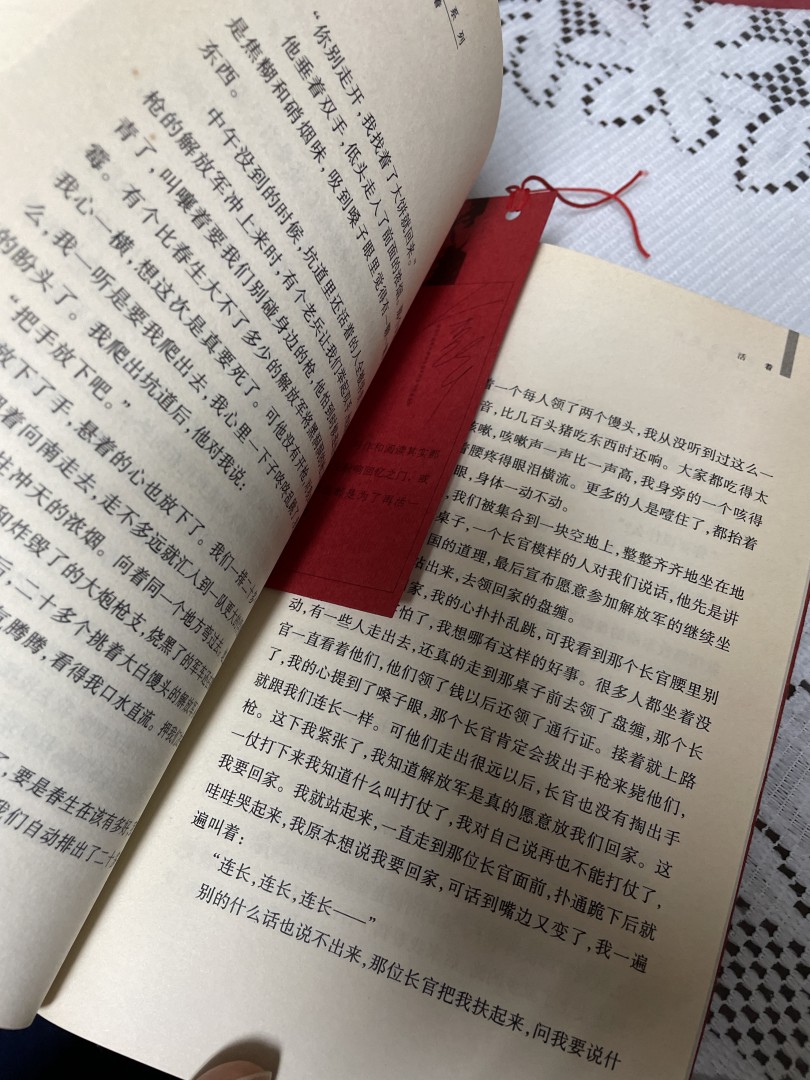 系列
“你别走开，我找着了大饼就回来。”
他垂着双手，低头走入了前面的
是焦糊和硝烟味，吸到嗓子眼里觉得有
东西。
中午没到的时候，坑道里还活着的人全
枪的解放军冲上来时，有个老兵让我们举起
青了，叫嚷着要我们别碰身边的枪，他怕到
霉。有个比春生大不了多少的解放军将黑
我心一横，想这次是真要死了。可他没有开枪，
么，我一听是要我爬出去，我心里一下子咚咚乱跳
的盼头了。我爬出坑道后，他对我说：
“把手放下吧。”
放下了手，悬着的心也放下了。我们一排二十
着向南走去，走不多远就汇入到一队更大
冲天的浓烟。向着同一个地方弯过去
和炸毁了的大炮枪支，烧黑了的军车还
后，二十多个挑着大白馒头的解放军
气腾腾，看得我口水直流。押我们
了，要是春生在该有多好
我们自动排出了二十
活着
着一个每人领了两个馒头，我从没听到过这么一
音，比几百头猪吃东西时还响。大家都吃得太
咳嗽，咳嗽声一声比一声高，我身旁的一个咳得
着腰疼得眼泪横流。更多的人是噎住了，都抬着
眼，身体一动不动。
，我们被集合到一块空地上，整整齐齐地坐在地
桌子，一个长官模样的人对我们说话，他先是讲
国的道理，最后宣布愿意参加解放军的继续坐
站出来，去领回家的盘缠。
家，我的心扑扑乱跳，可我看到那个长官腰里别
怕了，我想哪有这样的好事。很多人都坐着没
动，有一些人走出去，还真的走到那桌子前去领了盘缠，那个长
官一直看着他们，他们领了钱以后还领了通行证。接着就上路
了，我的心提到了嗓子眼，那个长官肯定会拔出手枪来毙他们，
就跟我们连长一样。可他们走出很远以后，长官也没有掏出手
枪。这下我紧张了，我知道解放军是真的愿意放我们回家。这
一仗打下来我知道什么叫打仗了，我对自己说再也不能打仗了，
我要回家。我就站起来，一直走到那位长官面前，扑通跪下后就
哇哇哭起来，我原本想说我要回家，可话到嘴边又变了，我一遍
遍叫着：
“连长，连长，连长——”
别的什么话也说不出来，那位长官把我扶起来，问我要说什